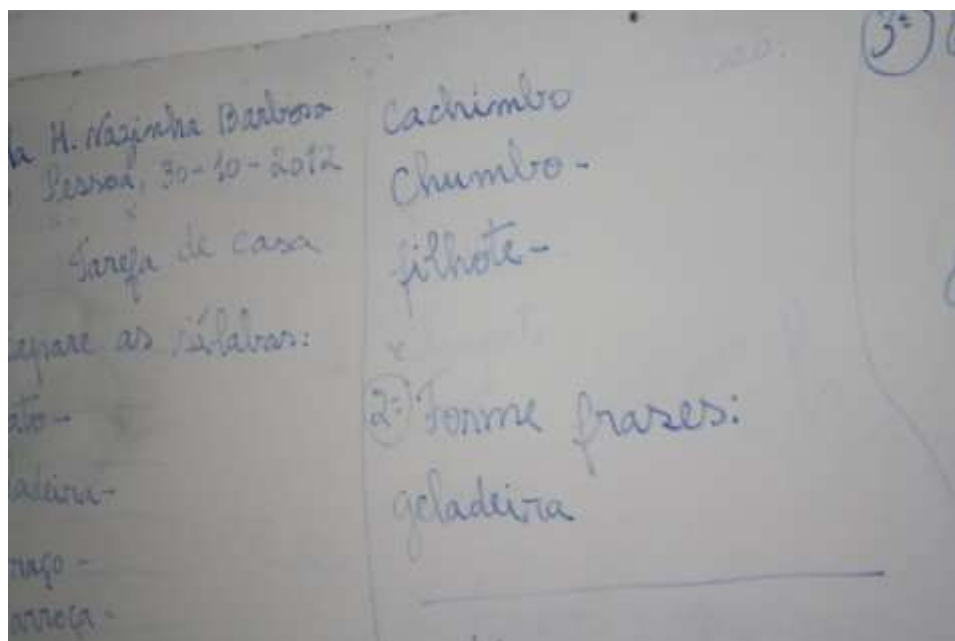 H. Nazinha Barbosa
Pessoa, 30-10-2012
Tarefa de casa
epare as sílabas:
ato-
adeira-
raço-
arroça-
cachimbo
chumbo-
filhote-
2ª) Forme frases:
geladeira
3ª